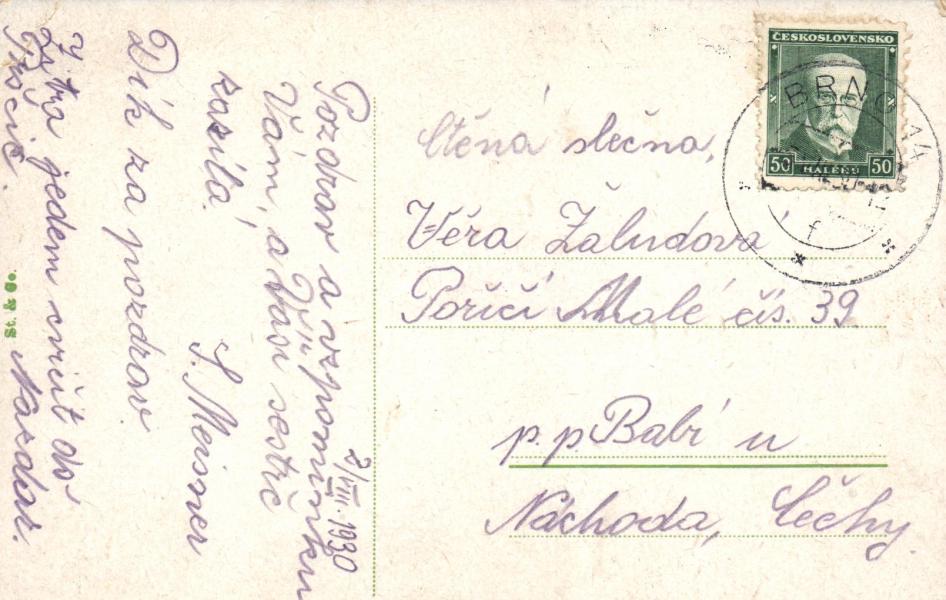 Pozdrav a vzpomínku
Vám, a Vaší sestře
zasílá
S. Meisner
2/VIII. 1930
Dík za pozdrav
Zítra jedem cvičit do
Nazdar.
St. & Co.
ČESKOSLOVENSKO
50 HALÉŘŮ 50
BRNO 14
Ctěná slečna,
Věra Žaludová
Poříčí Malé čís. 39
p. p. Babí u
Náchoda, Čechy.